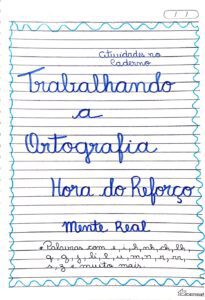 / /
Atividades no
Caderno
Trabalhando
a
Ortografia
Hora do Reforço
Mente Real
• Palavras com e, i, h, nh, ch, lh,
q, g, j, l, u, m, n, r, rr,
s, z e muito mais.